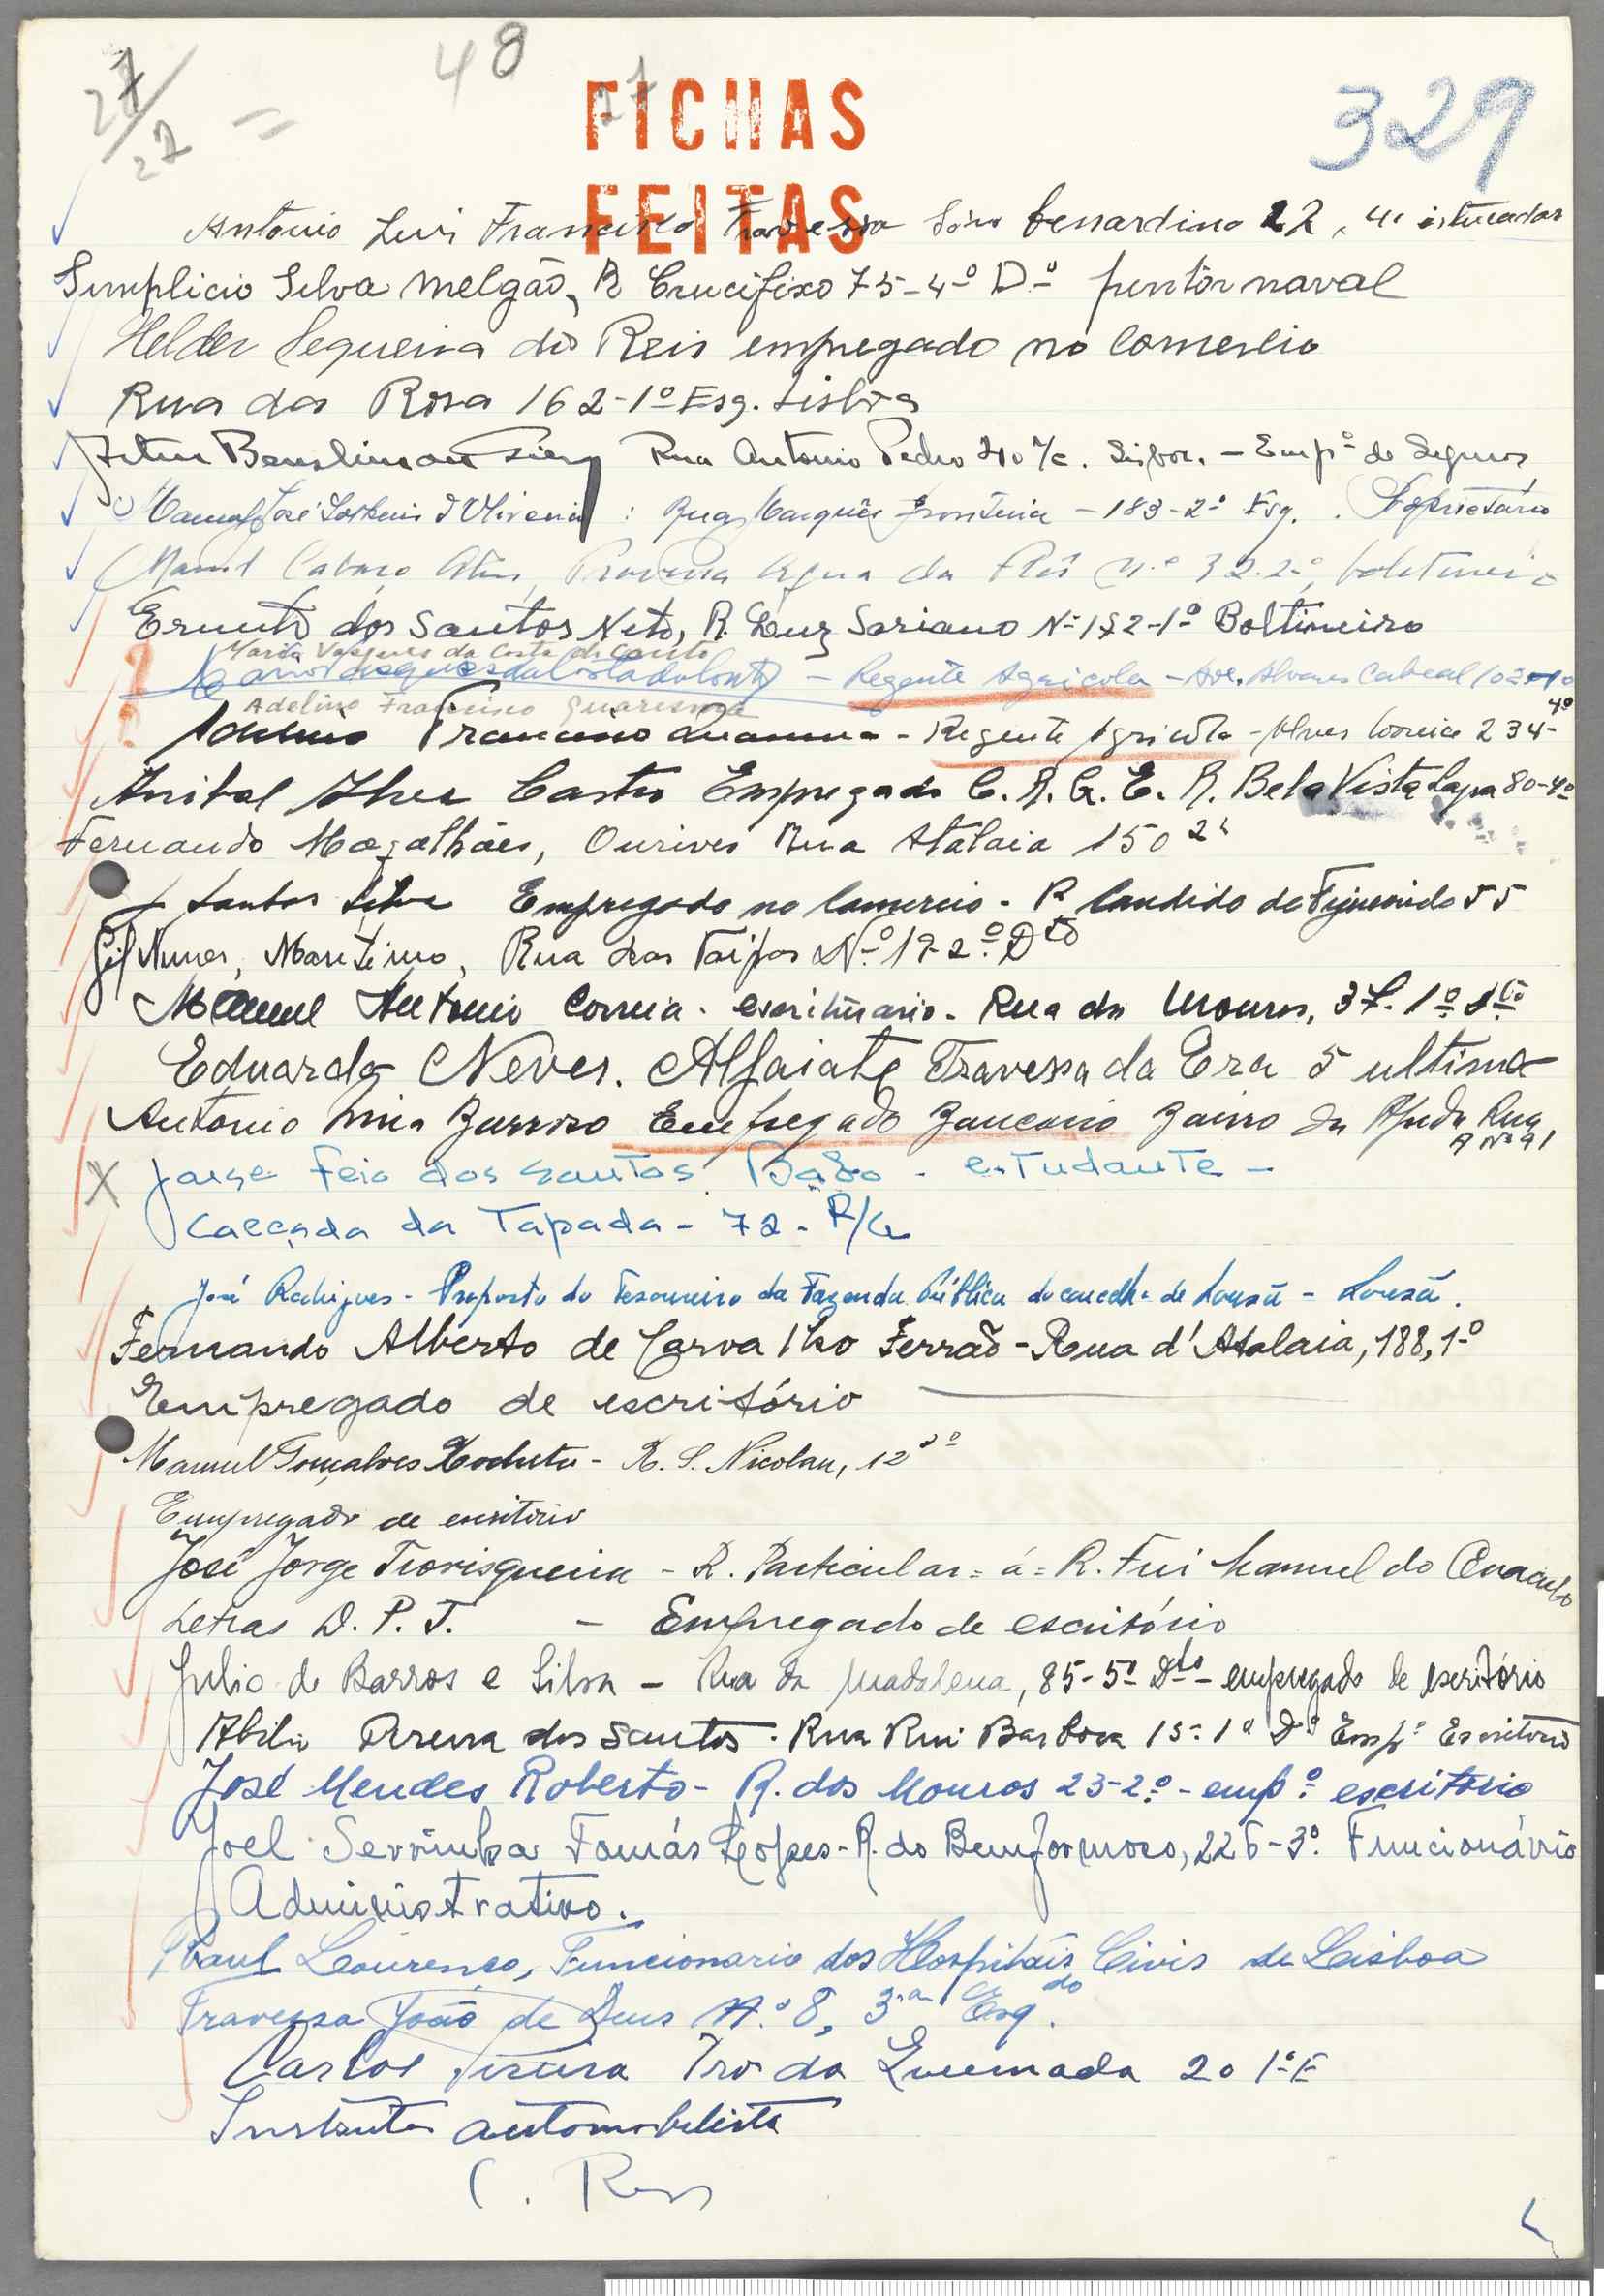 27/27 = 48
27
329
FICHAS
FEITAS
António Luis Francisco Travessa São bernardino 22, 4º estucador
Simplicio Silva Melgão, R Crucifixo 75-4º Dº pintor naval
Helder Sequeira dos Reis empregado no comercio
Rua da Rosa 162-1º Esq. Lisboa
Rua Antonio Pedro 40 r/c. Lisboa. - Empº de Seguros
Manuel José d'Oliveira : Rua Marquês Fronteira - 183-2º Esq. . Proprietário
Manuel Travessa Agua da Flôr Nº 32.2º, boletineiro
Ernesto dos Santos Neto, R. Luz Soriano Nº 152-1º Boltineiro
Maria Vasques da Costa do Couto
- Regente Agricola - Ave. Alvares Cabral
Adelino Francisco Quaresma
Adelino Francisco Quaresma - Regente Agricola - Alves Correia 234-4º
Anibal Castro Empregado C.R.G.E. R. Bela Vista Lapa 80-4º
Fernando Magalhães, Ourives Rua Atalaia 150 2º
J Santos Silva Empregado no Comercio - R Candido de Figueiredo 55
Gil Nunes, Maritimo, Rua das Taipas Nº 19-2º Dto
Manuel Antonio Correia - escriturario - Rua da Mouros, 37. 1º dto
Eduardo Neves. Alfaiate Travessa da Era 5 ultimo
Antonio Lima Barroso Empregado Bancario Bairro da Ajuda Rua
A Nº 41
X Jorge Feio dos Santos - estudante -
Calçada da Tapada - 72 - R/c
José Rodrigues - Proposto do Tesoureiro da Fazenda Pública do concelho de Lousã - Lousã.
Fernando Alberto de Carvalho Ferrão - Rua d'Atalaia, 188, 1º
Empregado de escritório
Manuel Gonçalves - R. S. Nicolau, 12
Empregado de escritorio
José Jorge - R. Particular = á = R. Frei Manuel do Cenaculo
Letras D. P. J. - Empregado de escritório
Julio de Barros e Silva - Rua da Madalena, 85-5º Dto - empregado de escritório
Abilio Pereira dos Santos - Rua Rui Barbosa 15-1º Dº Empº Escritorio
José Mendes Roberto - R. dos Mouros 23-2º - empº escritorio
Joel Serrinha Tomás Lopes - R. do Bemformoso, 226-3º. Funcionário
Administrativo.
Raul Lourenço, Funcionario dos Hospitais Civis de Lisboa
Travessa João de Deus Nº 8, 3º Esqdo.
Carlos Tra da Queimada 20 1º E
automobelista